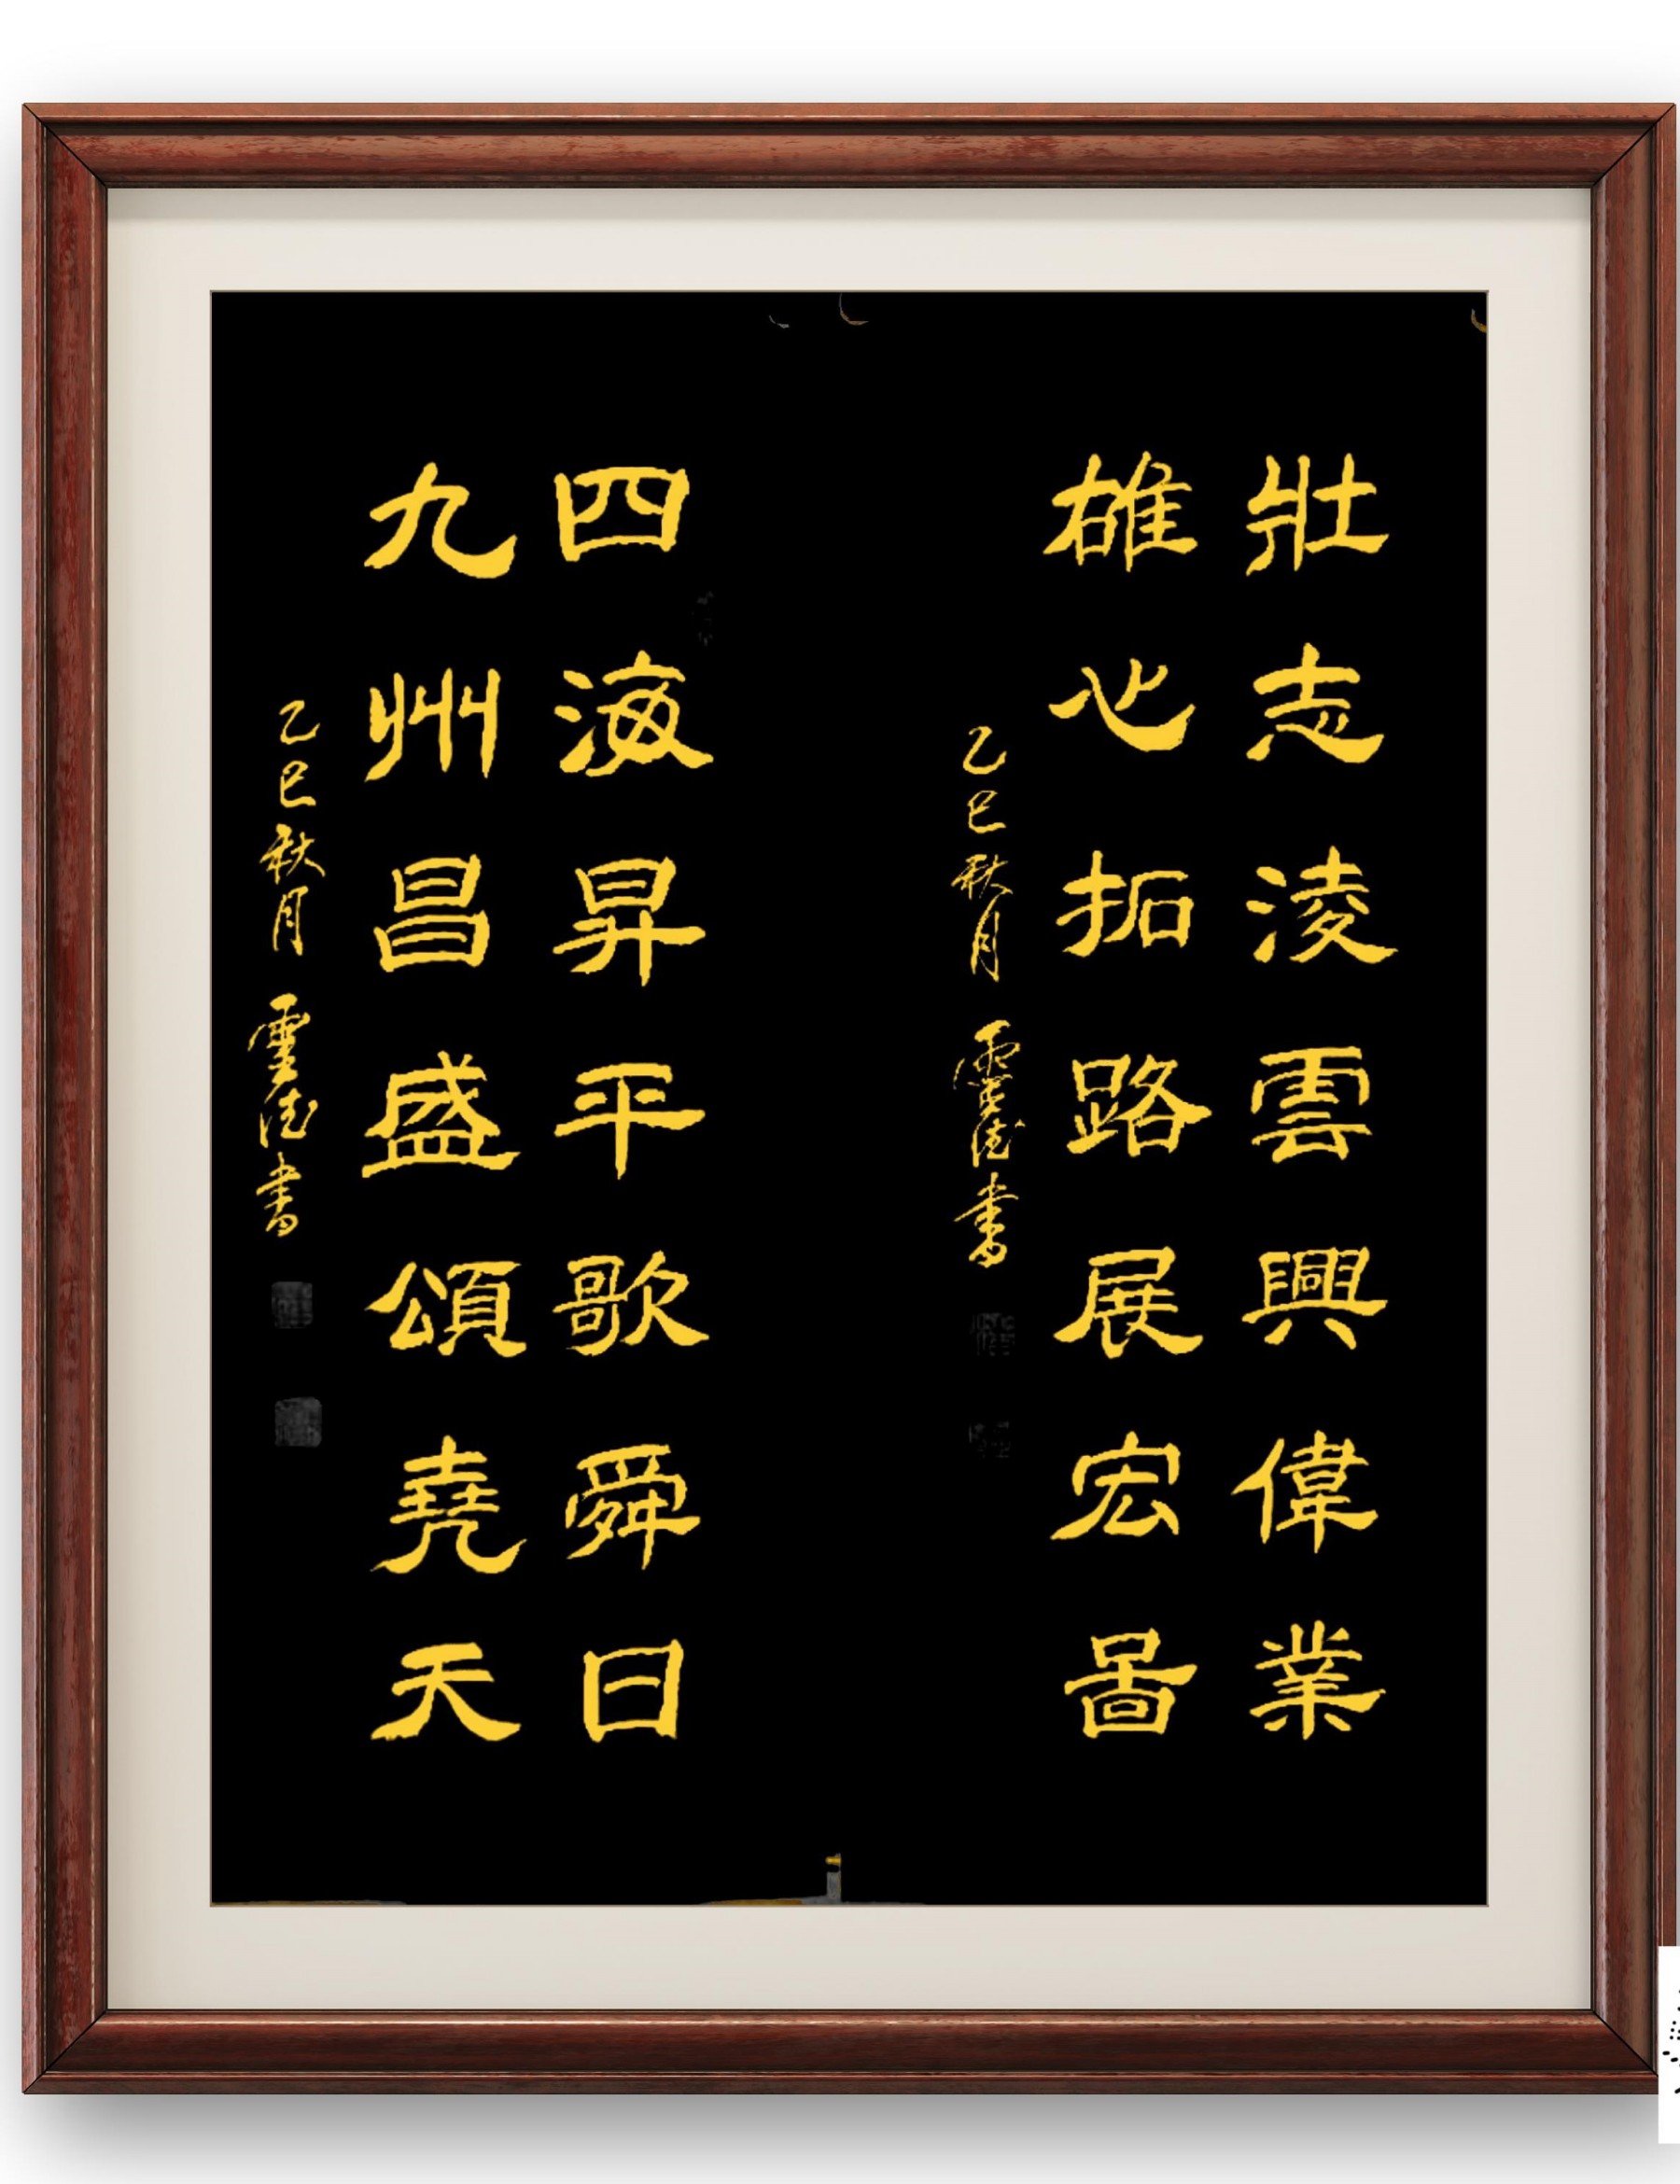 壯志淩雲興偉業
雄心拓路展宏啚
乙巳秋月 雲德書
四海昇平歌舜日
九州昌盛頌堯天
乙巳秋月 雲德書